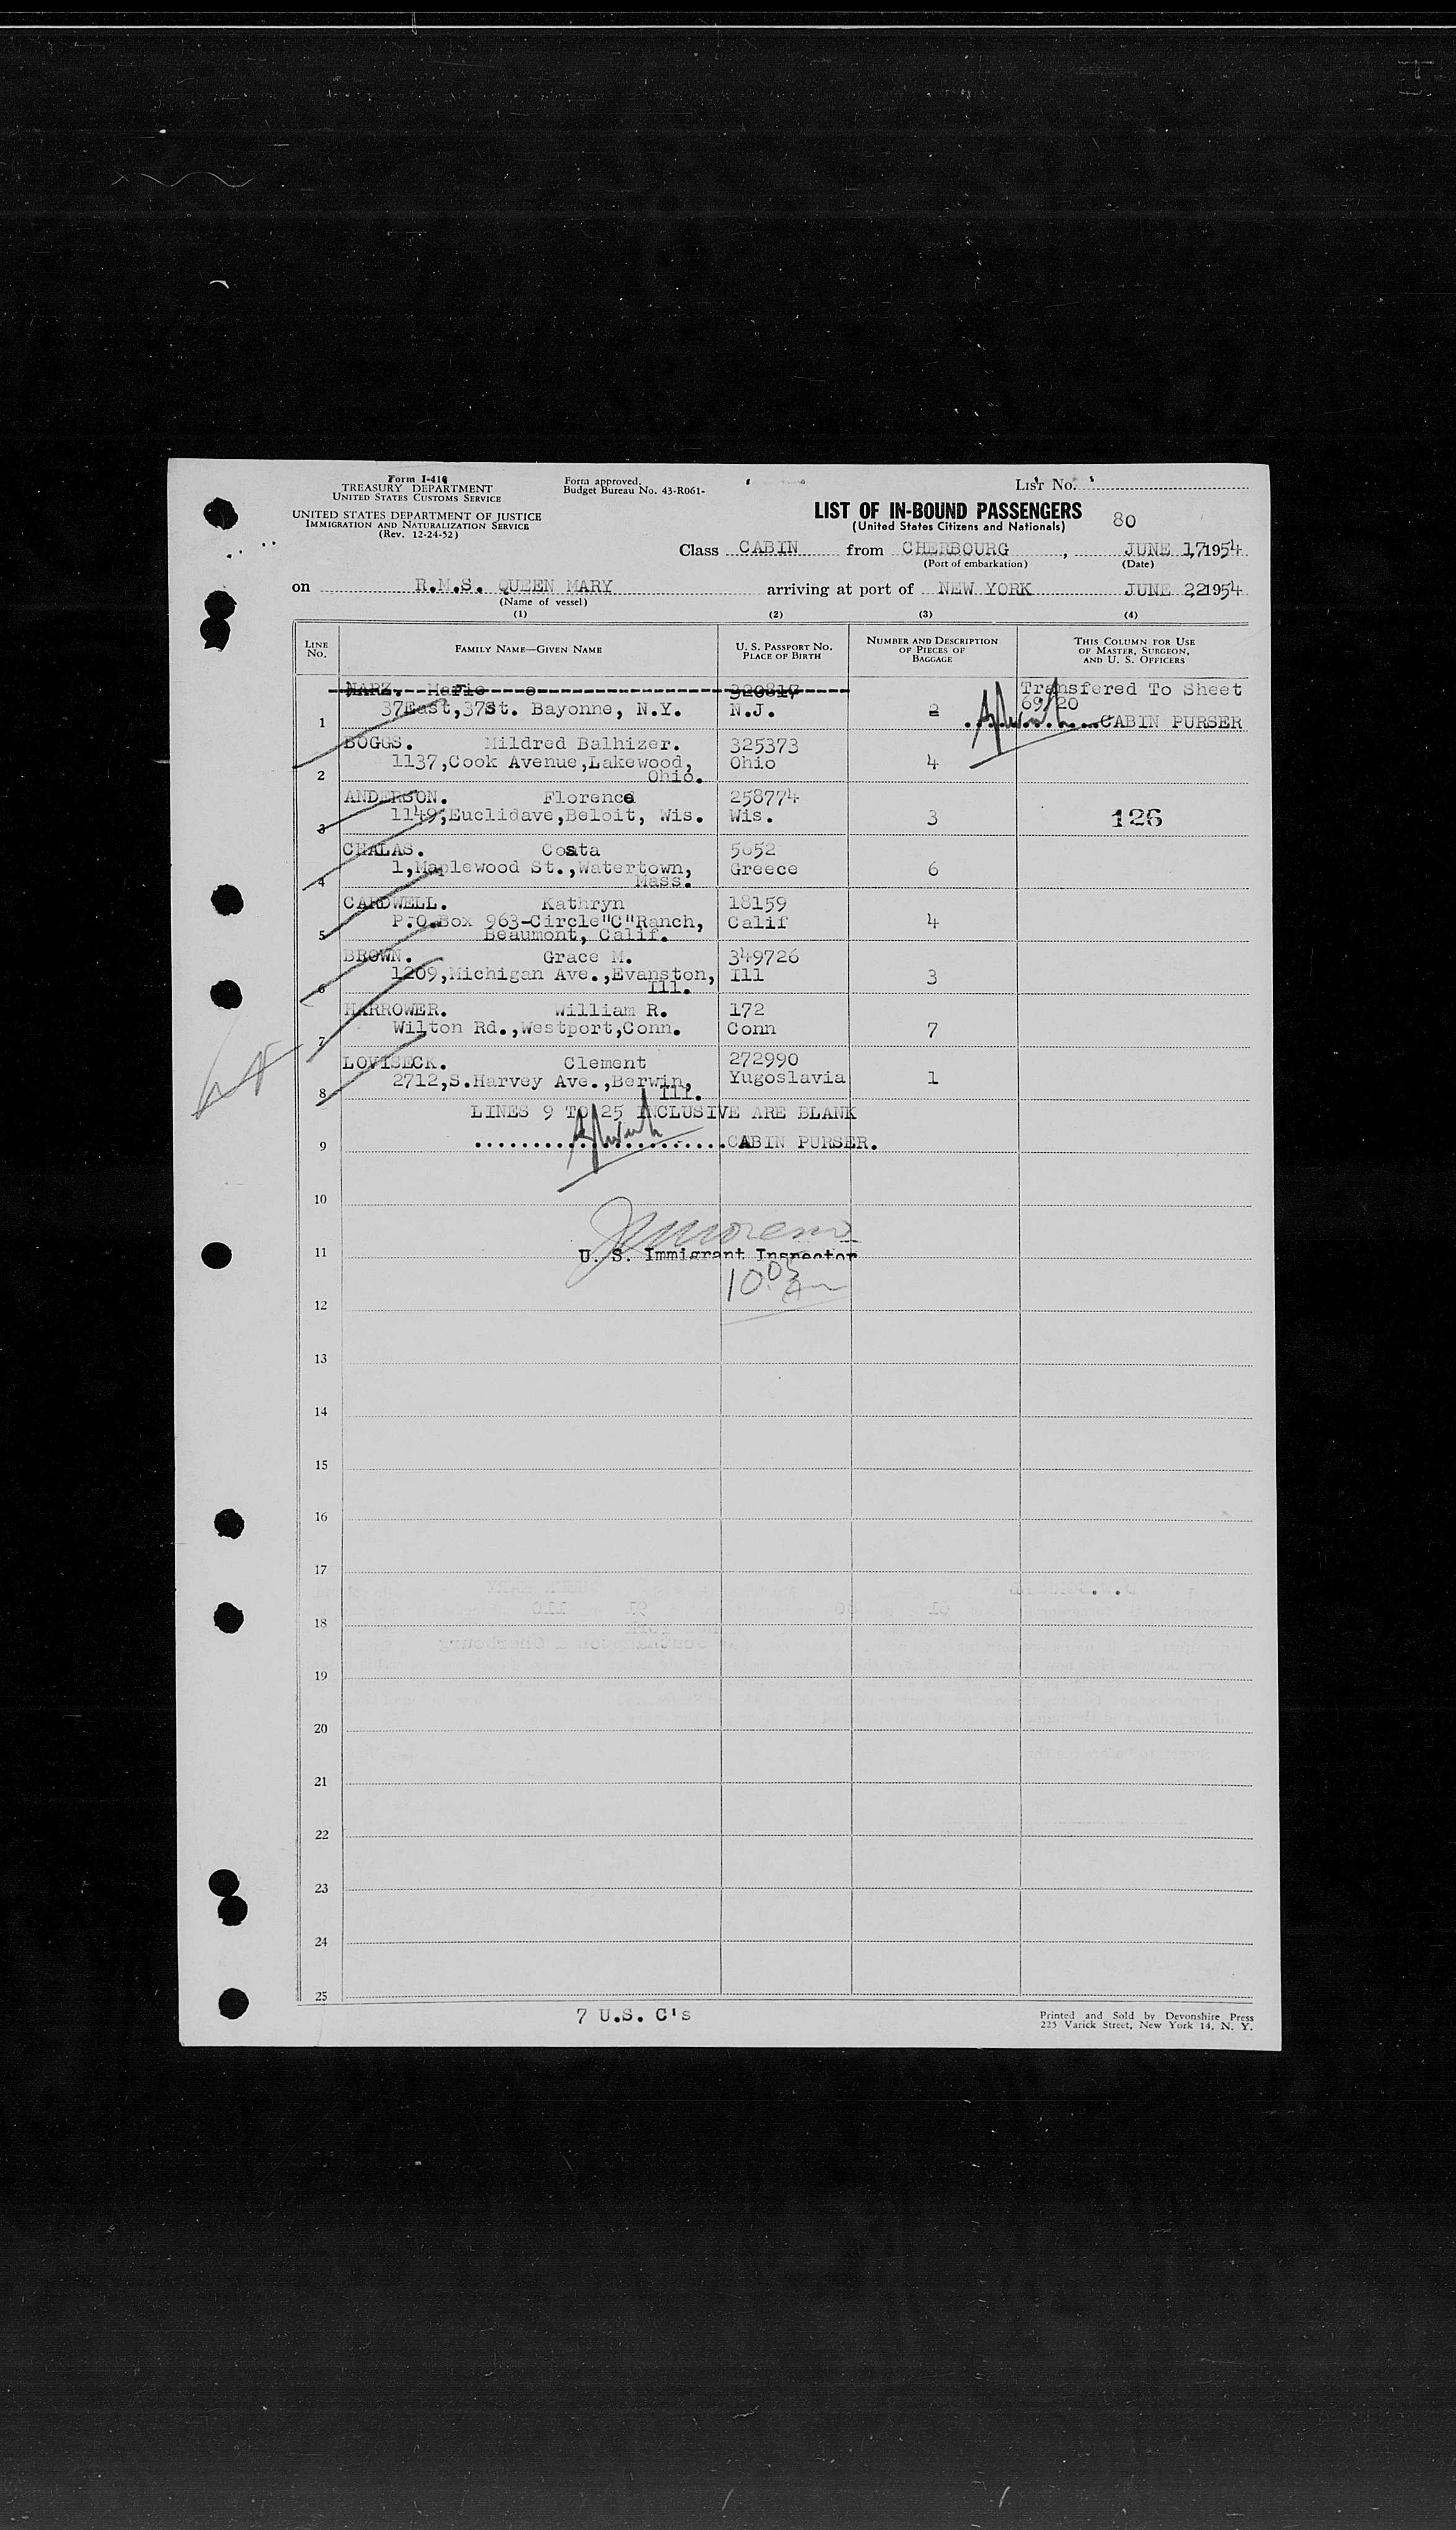 Form I-418
TREASURY DEPARTMENT
UNITED STATES CUSTOMS SERVICE
UNITED STATES DEPARTMENT OF JUSTICE
IMMIGRATION AND NATURALIZATION SERVICE
(Rev. 12-24-52)
Form approved.
Budget Bureau No. 43-R061-
LIST No.
LIST OF IN-BOUND PASSENGERS
(United States Citizens and Nationals)
80
Class CABIN from CHERBOURG , JUNE 17,1954
(Port of embarkation) (Date)
on R.M.S. QUEEN MARY arriving at port of NEW YORK JUNE 22,1954
(Name of vessel)
(1) (2) (3) (4)
LINE No. FAMILY NAME—GIVEN NAME U. S. PASSPORT NO. PLACE OF BIRTH NUMBER AND DESCRIPTION OF PIECES OF BAGGAGE THIS COLUMN FOR USE OF MASTER, SURGEON, AND U. S. OFFICERS
Marie 320817 Transfered To Sheet
69/20
1 37East,37St. Bayonne, N.Y. N.J. 2 CABIN PURSER
BOGGS. Mildred Balhizer. 325373
1137,Cook Avenue,Lakewood, Ohio 4
2 Ohio.
ANDERSON. Florence 258774
3 1149,Euclidave,Beloit, Wis. Wis. 3 126
CHALAS. Costa 5052
1,Maplewood St.,Watertown, Greece 6
4 Mass.
CARDWELL. Kathryn 18159
P.O.Box 963-Circle"C"Ranch, Calif 4
5 Beaumont, Calif.
BROWN. Grace M. 349726
1209,Michigan Ave.,Evanston, Ill 3
6 Ill.
HARROWER. William R. 172
Wilton Rd.,Westport,Conn. Conn 7
7
LOVISECK. Clement 272990
2712,S.Harvey Ave.,Berwin, Yugoslavia 1
8 Ill.
LINES 9 TO 25 INCLUSIVE ARE BLANK
9 CABIN PURSER.
10
11 U. S. Immigrant Inspector
10 05 A
12
13
14
15
16
17
18
19
20
21
22
23
24
25
7 U.S. C's
Printed and Sold by Devonshire Press
225 Varick Street, New York 14, N. Y.